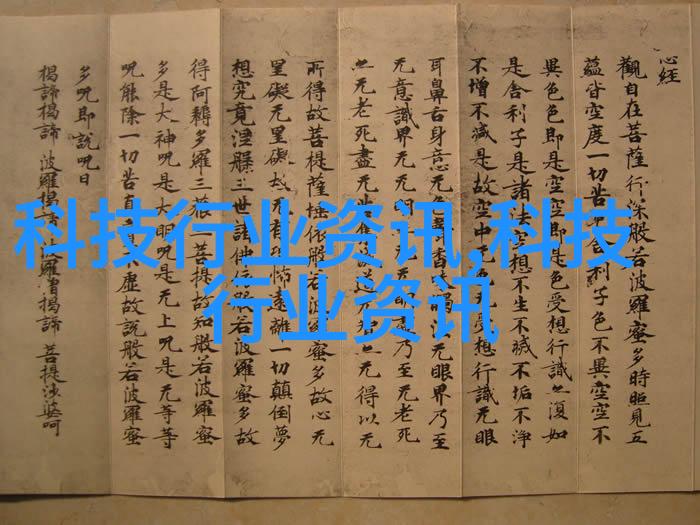 心経
觀自在菩薩行深般若波羅蜜多時照見五
蘊皆空度一切苦舍利子色不異空空不
異色色即是空空即是色受想行識亦復如
是舍利子是諸法空想不生不滅不垢不淨
不增不減是故空中无色无受想行識无眼
耳鼻舌身意无色聲香味觸法无眼界乃至
无意識界无无明无乃至无老死
亦无老死盡无苦集道无亦无得以无
所得故菩提薩埵依般若波羅蜜多故心无
罣礙无罣礙故无有恐怖遠離一切顛倒夢
想究竟涅槃三世諸佛依般若波羅蜜多故
得阿耨多羅三藐菩提故知般若波羅蜜
多是大神呪是大明呪是无上呪是无等等
呪能除一切苦真不虛故說般若波羅蜜
多呪即說呪曰
揭諦揭諦 波羅揭諦 波羅僧揭諦 菩提娑婆呵
科技行业资讯,科技
行业资讯